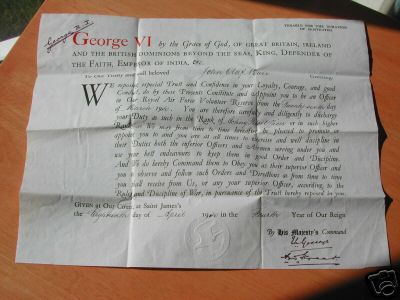 TENABLE FOR THE DURATION
OF HOSTILITIES
George R I
George VI by the Grace of God, OF GREAT BRITAIN, IRELAND
AND THE BRITISH DOMINIONS BEYOND THE SEAS, KING, DEFENDER OF
THE FAITH, EMPEROR OF INDIA, &c
To Our Trusty and well beloved John Greeting:
WE reposing especial Trust and Confidence in your Loyalty, Courage, and good
Conduct, do by these Presents Constitute and appoint you to be an Officer
in Our Royal Air Force Volunteer Reserve from the day
of 1940. You are therefore carefully and diligently to discharge
your Duty as such in the Rank of or in such higher
Rank as We may from time to time hereafter be pleased to promote or
appoint you to and you are at all times to exercise and well discipline in
their Duties both the inferior Officers and Airmen serving under you and
use your best endeavours to keep them in good Order and Discipline.
And We do hereby Command them to Obey you as their superior Officer and
you to observe and follow such Orders and Directions as from time to time
you shall receive from Us, or any your superior Officer, according to the
Rules and Discipline of War, in pursuance of the Trust hereby reposed in you.
GIVEN at Our Court, at Saint James's
the day of April 1940 in the Fourth Year of Our Reign
By His Majesty's Command